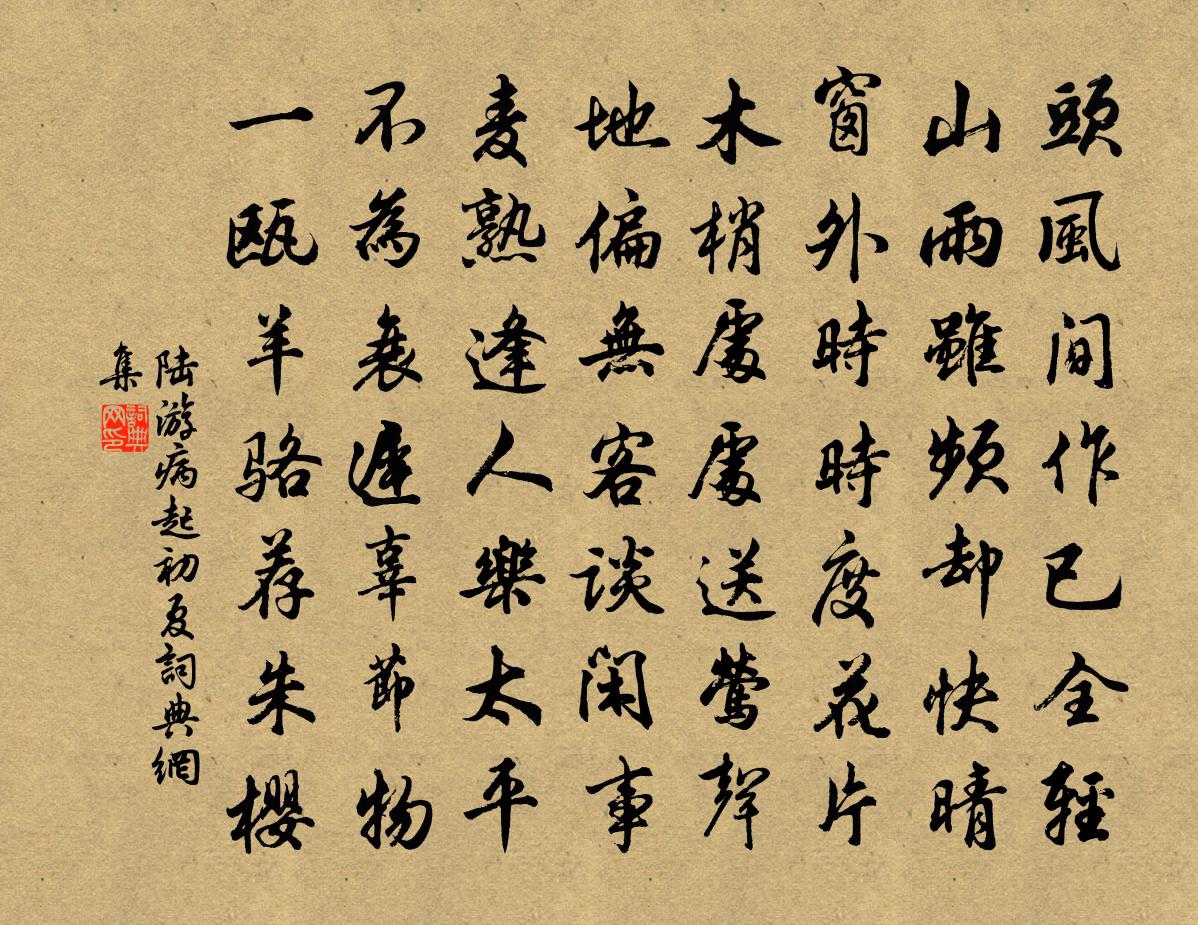 頭風間作已全輕
山雨雖頻却快晴
窗外時時度花片
木梢處處送鶯聲
地偏無客談閑事
麦熟逢人樂太平
不為衰遲辜節物
一甌羊骆荐朱櫻
陆游病起初夏詞典網
集
詞典网印